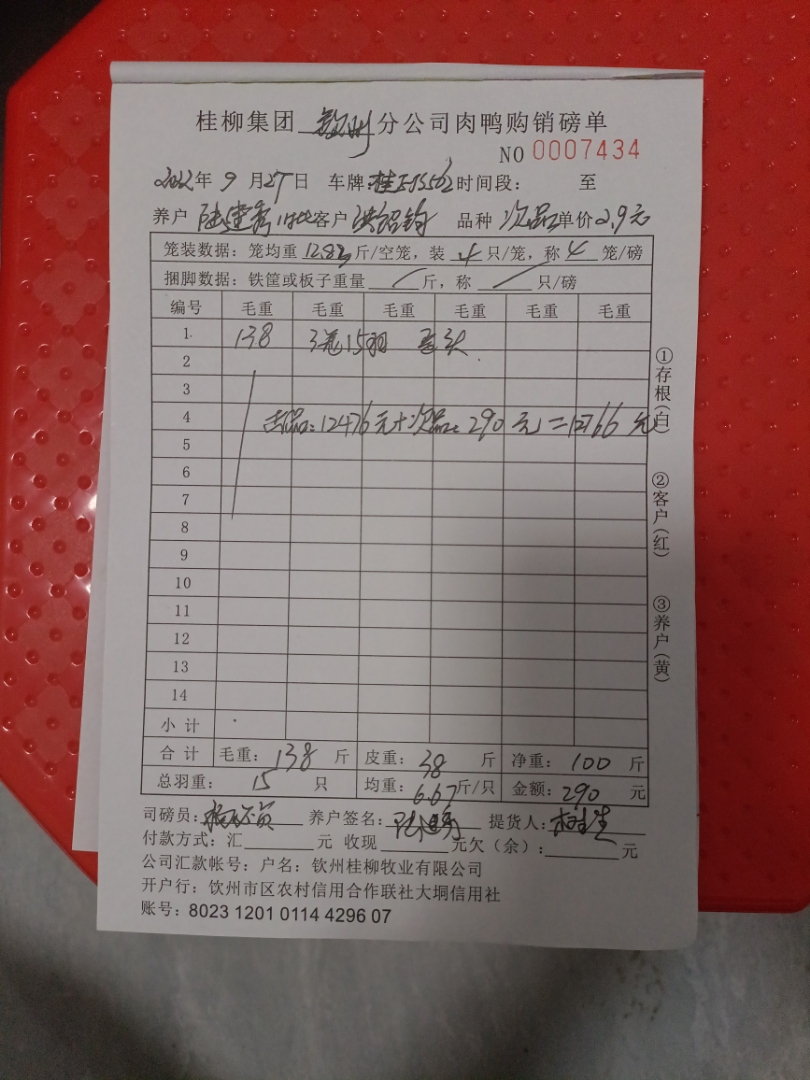 桂柳集团 钦州 分公司肉鸭购销磅单
NO 0007434
2022年 9 月 27日 车牌: 时间段： 至
养户 客户 洪绍钧 品种 次品 单价 2.9元
笼装数据：笼均重 12.83 斤/空笼，装 只/笼，称 笼/磅
捆脚数据：铁筐或板子重量 / 斤，称 / 只/磅
编号 毛重 毛重 毛重 毛重 毛重 毛重
1 138 3笼15羽
2
3
4 12476元+次品：290元=12766元
5
6
7
8
9
10
11
12
13
14
小 计
合 计 毛重：138 斤 皮重：38 斤 净重：100 斤
总羽重：15 只 均重：6.67斤/只 金额：290 元
司磅员： 养户签名： 提货人：
付款方式：汇 元 收现 元欠（余）： 元
公司汇款帐号：户名：钦州桂柳牧业有限公司
开户行：钦州市区农村信用合作联社大垌信用社
账号：8023 1201 0114 4296 07
①存根（白）
②客户（红）
③养户（黄）